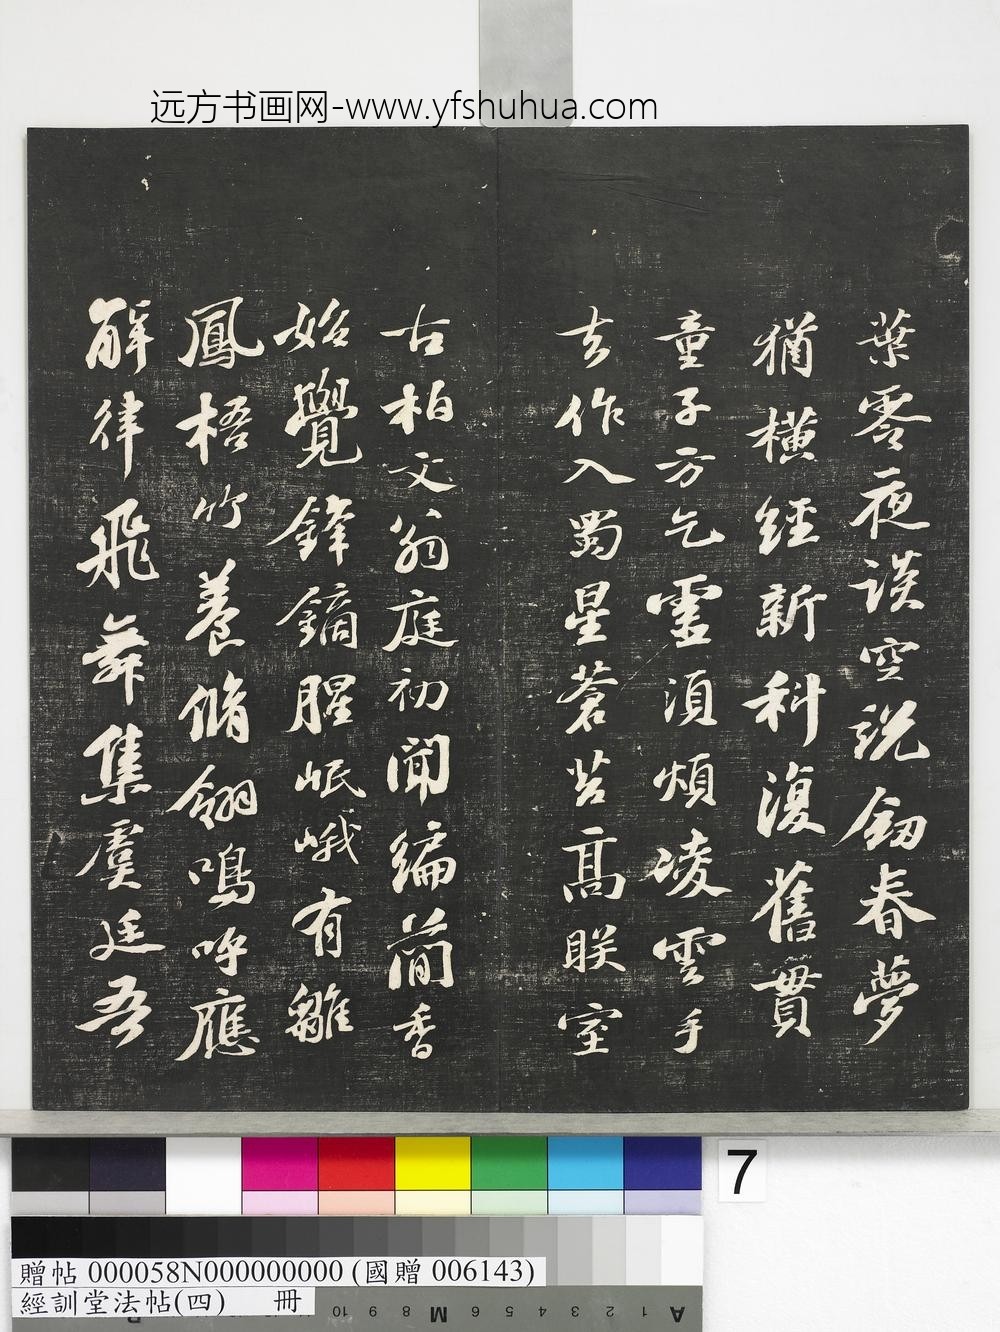 远方书画网-www.yfshuhua.com
葉零夜談空説劒春夢
猶橫經新科復舊貫
童子方乞靈須煩凌雲手
去作入蜀星蒼苔高朕室
古柏文翁庭初聞編簡香
始覺鋒鏑腥岷峨有雛
鳳梧竹養脩翎鳴呼應
解律飛舞集虞廷吾
7
贈帖 000058N000000000 (國贈 006143)
經訓堂法帖(四) 冊
10 9 8 M 6 5 4 3 2 1 A